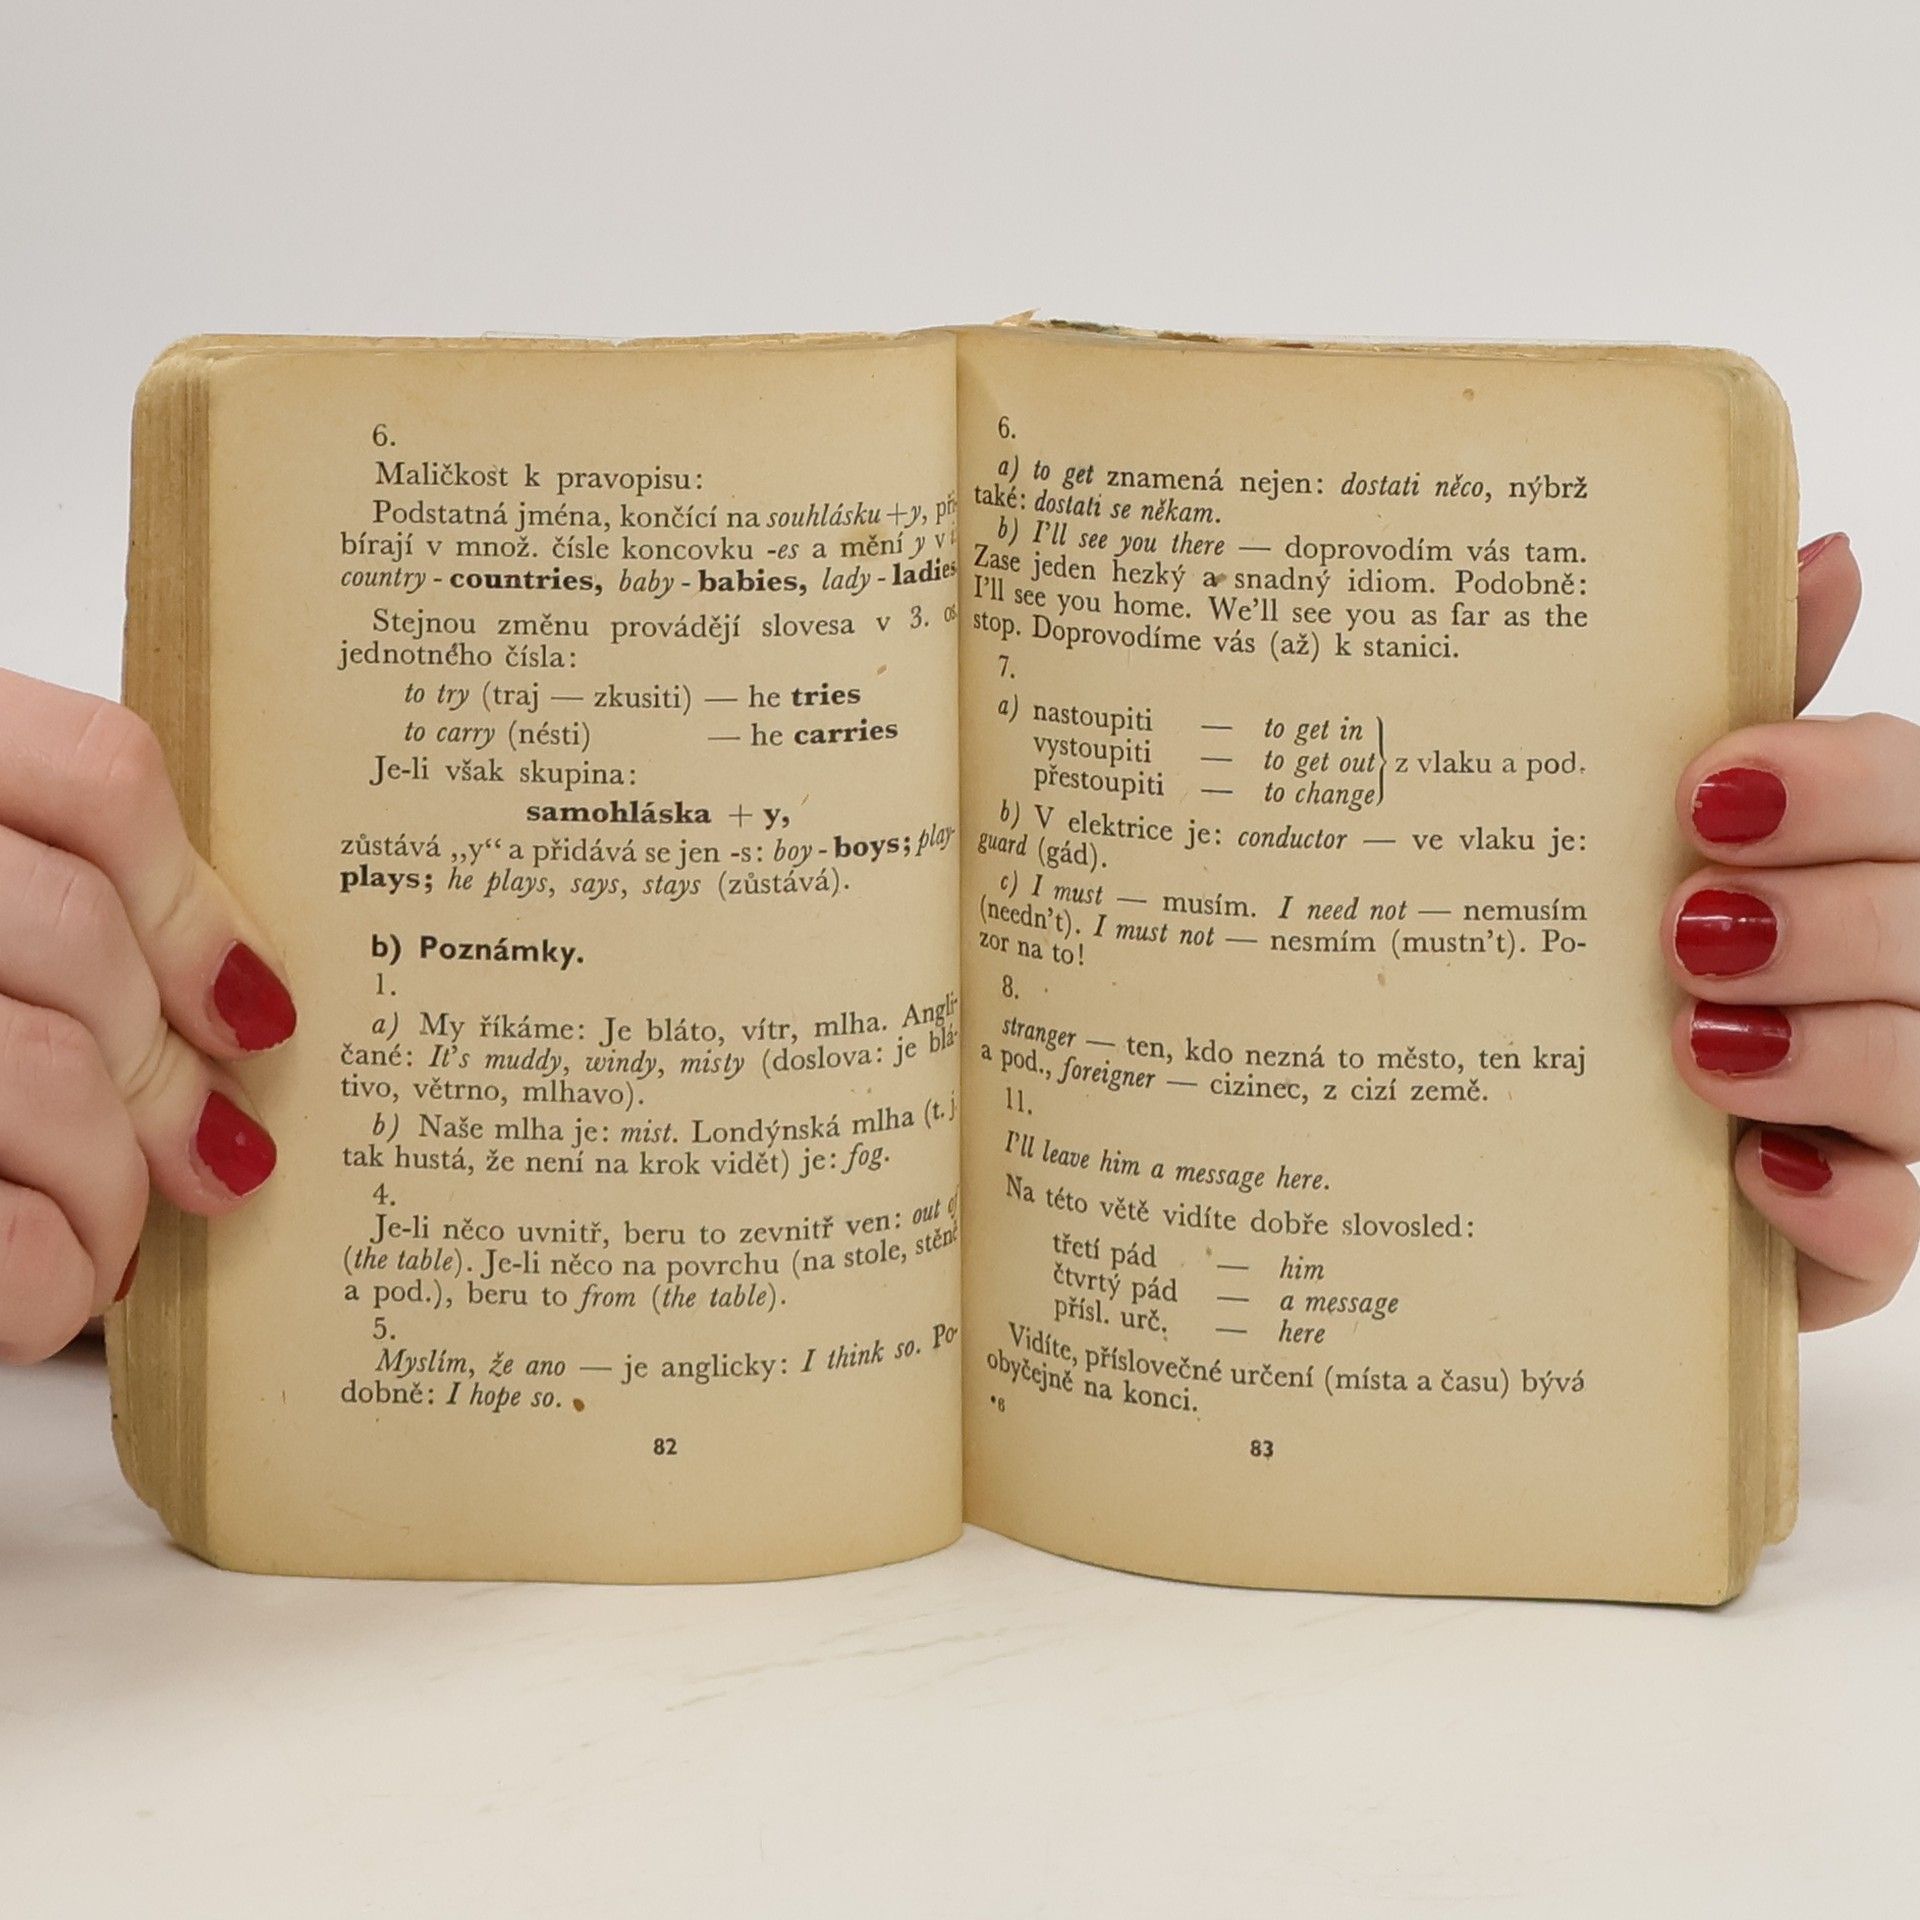 6.
Maličkost k pravopisu:
Podstatná jména, končící na souhlásku +y, při-
bírají v množ. čísle koncovku -es a mění y v i
country - countries, baby - babies, lady - ladies
Stejnou změnu provádějí slovesa v 3. os.
jednotného čísla:
to try (traj — zkusiti) — he tries
to carry (nésti) — he carries
Je-li však skupina:
samohláska + y,
zůstává „y“ a přidává se jen -s: boy - boys; play-
plays; he plays, says, stays (zůstává).
b) Poznámky.
1.
a) My říkáme: Je bláto, vítr, mlha. Angli-
čané: It's muddy, windy, misty (doslova: je blá-
tivo, větrno, mlhavo).
b) Naše mlha je: mist. Londýnská mlha (t. j.
tak hustá, že není na krok vidět) je: fog.
4.
Je-li něco uvnitř, beru to zevnitř ven: out of
(the table). Je-li něco na povrchu (na stole, stěně
a pod.), beru to from (the table).
5.
Myslím, že ano — je anglicky: I think so. Po-
dobně: I hope so.
82
6.
a) to get znamená nejen: dostati něco, nýbrž
také: dostati se někam.
b) I'll see you there — doprovodím vás tam.
Zase jeden hezký a snadný idiom. Podobně:
I'll see you home. We'll see you as far as the
stop. Doprovodíme vás (až) k stanici.
7.
a) nastoupiti — to get in
vystoupiti — to get out } z vlaku a pod.
přestoupiti — to change
b) V elektrice je: conductor — ve vlaku je:
guard (gád).
c) I must — musím. I need not — nemusím
(needn't). I must not — nesmím (mustn't). Po-
zor na to!
8.
stranger — ten, kdo nezná to město, ten kraj
a pod., foreigner — cizinec, z cizí země.
11.
I'll leave him a message here.
Na této větě vidíte dobře slovosled:
třetí pád — him
čtvrtý pád — a message
přísl. urč. — here
Vidíte, příslovečné určení (místa a času) bývá
obyčejně na konci.
*6
83